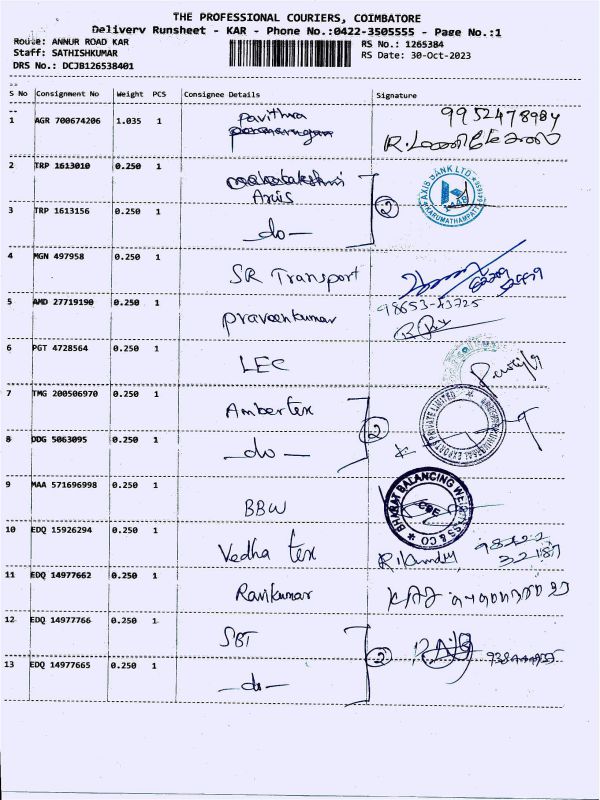 THE PROFESSIONAL COURIERS, COIMBATORE
Delivery Runsheet - KAR - Phone No.:0422-3505555 - Page No.:1
Route: ANNUR ROAD KAR
Staff: SATHISHKUMAR
DRS No.: DCJB126538401
RS No.: 1265384
RS Date: 30-Oct-2023
S No Consignment No Weight PCS Consignee Details Signature
1 AGR 700674206 1.035 1 Pavithra 9952478984
2 TRP 1613010 0.250 1
AXIS BANK LTD. KARUMATHAMPATTI
3 TRP 1613156 0.250 1 -do- 2
4 MGN 497958 0.250 1 SR Transport
5 AMD 27719190 0.250 1 Praveenkumar 98653-43725
6 PGT 4728564 0.250 1 LEC
7 TMG 200506970 0.250 1 Amber tex
EXPORTS PRIVATE LIMITED
8 DDG 5063095 0.250 1 -do- 2
9 MAA 571696998 0.250 1 BBW
BHARAT BALANCING WEIGHTSS & CO
CBE
10 EDQ 15926294 0.250 1 Vedha tex
11 EDQ 14977662 0.250 1 Ramkumar
12 EDQ 14977766 0.250 1 SBT
13 EDQ 14977665 0.250 1 -do- 2